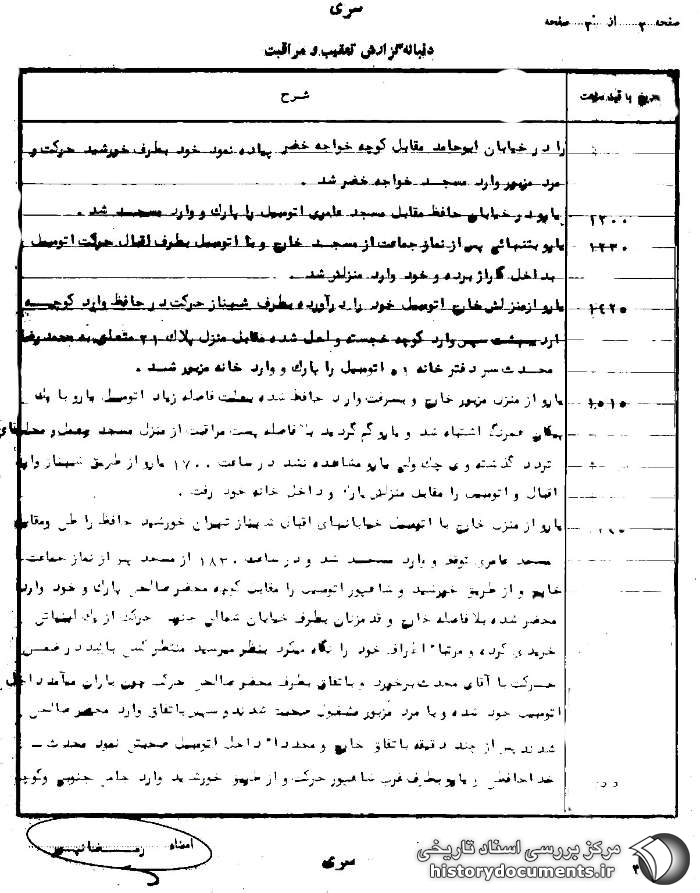 سری
صفحه ۳ از ۳۰ صفحه
دنباله گزارش تعقیب و مراقبت
تاریخ با قید ساعت
شرح
را در خیابان ابوحامد مقابل کوچه خواجه خضر پیاده نمود خود بطرف خورشید حرکت و
مرد مزبور وارد مسجد خواجه خضر شد .
۱۲۰۰ یارو در خیابان حافظ مقابل مسجد عامری اتومبیل را پارک و وارد مسجد شد .
۱۲۳۰ یارو بتنهائی پس از نماز جماعت از مسجد خارج و با اتومبیل بطرف اقبال حرکت اتومبیل
بداخل گاراژ برده و خود وارد منزلش شد .
۱۴۲۵ یارو از منزلش خارج اتومبیل خود را درآورده بطرف شهناز حرکت در حافظ وارد کوچه
سپس وارد کوچه خجسته و احل شده مقابل منزل پلاک ۲۱ متعلق به محمد رضا
محدث سر دفتر خانه ۵۱ اتومبیل را پارک و وارد خانه مزبور شد .
۱۵۱۵ یارو از منزل مزبور خارج و بسرعت وارد حافظ شده بعلت فاصله زیاد اتومبیل یارو با یک
پیکان همرنگ اشتباه شد و یارو گم گردید بلافاصله پست مراقبت از منزل مسجد و محلهای
تردد گذشته وی چک ولی یارو مشاهده نشد در ساعت ۱۷۰۰ یارو از طریق شهناز وارد
اقبال و اتومبیل را مقابل منزلش پارک و داخل خانه خود رفت .
یارو از منزل خارج با اتومبیل خیابانهای اقبال شهناز تهران خورشید حافظ را طی و مقابل
مسجد عامری توقف و وارد مسجد شد و در ساعت ۱۸۳۰ از مسجد پس از نماز جماعت
خارج و از طریق خورشید و شاهپور اتومبیل را مقابل کوچه محضر صالحی پارک و خود وارد
محضر شده بلافاصله خارج و قدم زنان بطرف خیابان شمالی حرکت از یک
خریدی کرده و مرتبا" اطراف خود را نگاه میکرد بنظر میرسید منتظر کسی باشد در ضمن
حرکت با آقای محدث برخورد و باتفاق بطرف محضر صالحی حرکت چون باران میآمد داخل
اتومبیل خود شده و با مرد مزبور مشغول صحبت شدند و سپس باتفاق وارد محضر صالحی
شدند پس از چند دقیقه باتفاق خارج و مجددا" داخل اتومبیل صحبتش نمود محدث
خداحافظی و یارو بطرف غرب شاهپور حرکت و از طریق خورشید وارد جنوبی و کوچه
امضاء
سری
مرکز بررسی اسناد تاریخی
historydocuments.ir